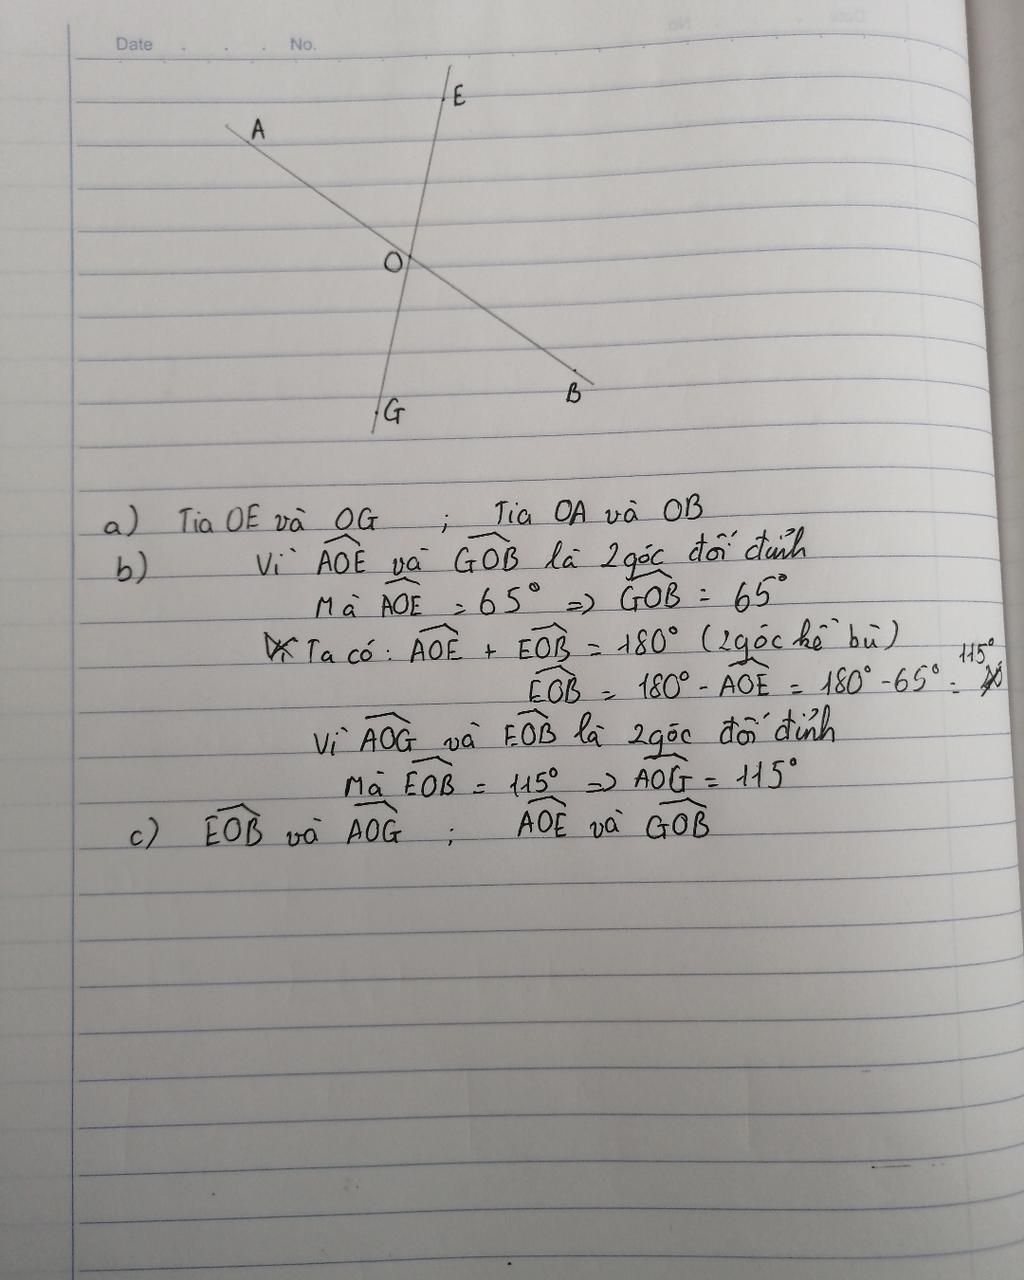 Date . . . No.
E
A
O
B
G
a) Tia OE và OG ; Tia OA và OB
b) Vì $\widehat{AOE}$ và $\widehat{GOB}$ là 2 góc đối đỉnh
Mà $\widehat{AOE}$ = 65° => $\widehat{GOB}$ = 65°
Ta có: $\widehat{AOE}$ + $\widehat{EOB}$ = 180° (2 góc kề bù)
$\widehat{EOB}$ = 180° - $\widehat{AOE}$ = 180° - 65° = 115°
Vì $\widehat{AOG}$ và $\widehat{EOB}$ là 2 góc đối đỉnh
Mà $\widehat{EOB}$ = 115° => $\widehat{AOG}$ = 115°
c) $\widehat{EOB}$ và $\widehat{AOG}$ ; $\widehat{AOE}$ và $\widehat{GOB}$